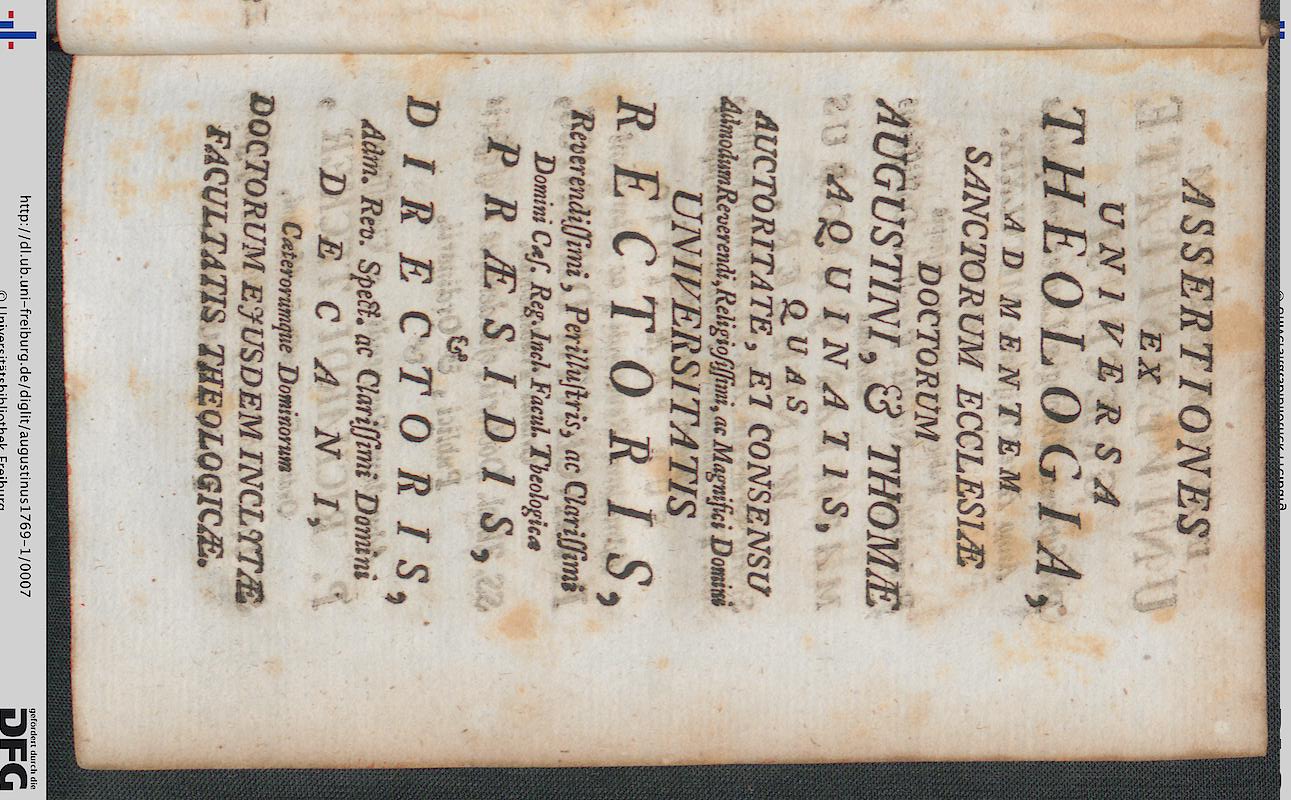 ASSERTIONES
EX
UNIVERSA
THEOLOGIA,
AD MENTEM
SANCTORUM ECCLESIÆ
DOCTORUM
AUGUSTINI, & THOMÆ
AQUINATIS,
QUAS
AUCTORITATE, ET CONSENSU
Admodum Reverendi, Religiosissimi, ac Magnifici Domini
UNIVERSITATIS
RECTORIS,
Reverendissimi, Perillustris, ac Clarissimi
Domini Cæs. Reg. Incl. Facul. Theologicæ
PRÆSIDIS,
&
DIRECTORIS,
Adm. Rev. Spect. ac Clarissimi Domini
DECANI,
Cæterorumque Dominorum
DOCTORUM EJUSDEM INCLYTÆ
FACULTATIS THEOLOGICÆ.
http://dl.ub.uni-freiburg.de/diglit/augustinus1769-1/0007
© Universitätsbibliothek Freiburg
gefördert durch die
DFG